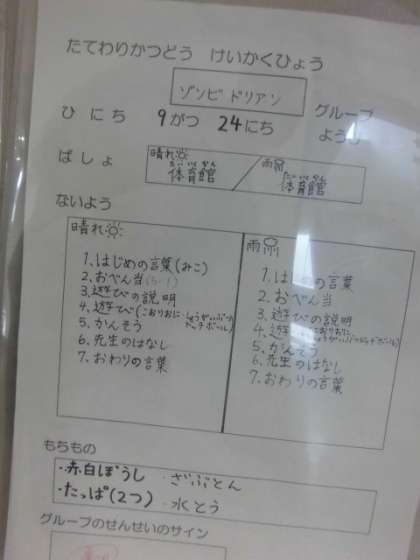 たてわりかつどう けいかくひょう
ゾンビドリアン グループ
ひにち 9がつ 24にち よう
ばしょ 晴れ 体育館 雨 体育館
たいいくかん
ないよう
晴れ
1、はじめの言葉(みこ)
2、おべん当
3、遊びの説明
4、遊び(こおりおに・しょうがいぶつドッチボール)
5、かんそう
6、先生のはなし
7、おわりの言葉
雨
1、はじめの言葉
2、おべん当
3、遊びの説明
4、遊び
5、かんそう
6、先生のはなし
7、おわりの言葉
もちもの
・赤白ぼうし ・ざぶとん
・たっぱ(2つ) ・水とう
グループのせんせいのサイン